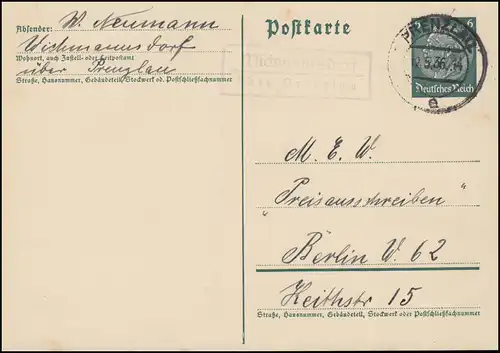 Absender: W. Neumann
Wichmannsdorf
Wohnort, auch Zustell- oder Leitpostamt
über Prenzlau
Straße, Hausnummer, Gebäudeteil, Stockwerk od. Postschließfachnummer
Postkarte
Wichmannsdorf
über Prenzlau
PRENZLAU
5.36
a
6
Deutsches Reich
M. E. W.
"Preisausschreiben"
Berlin W. 62
Keithstr 15
Straße, Hausnummer, Gebäudeteil, Stockwerk oder Postschließfachnummer